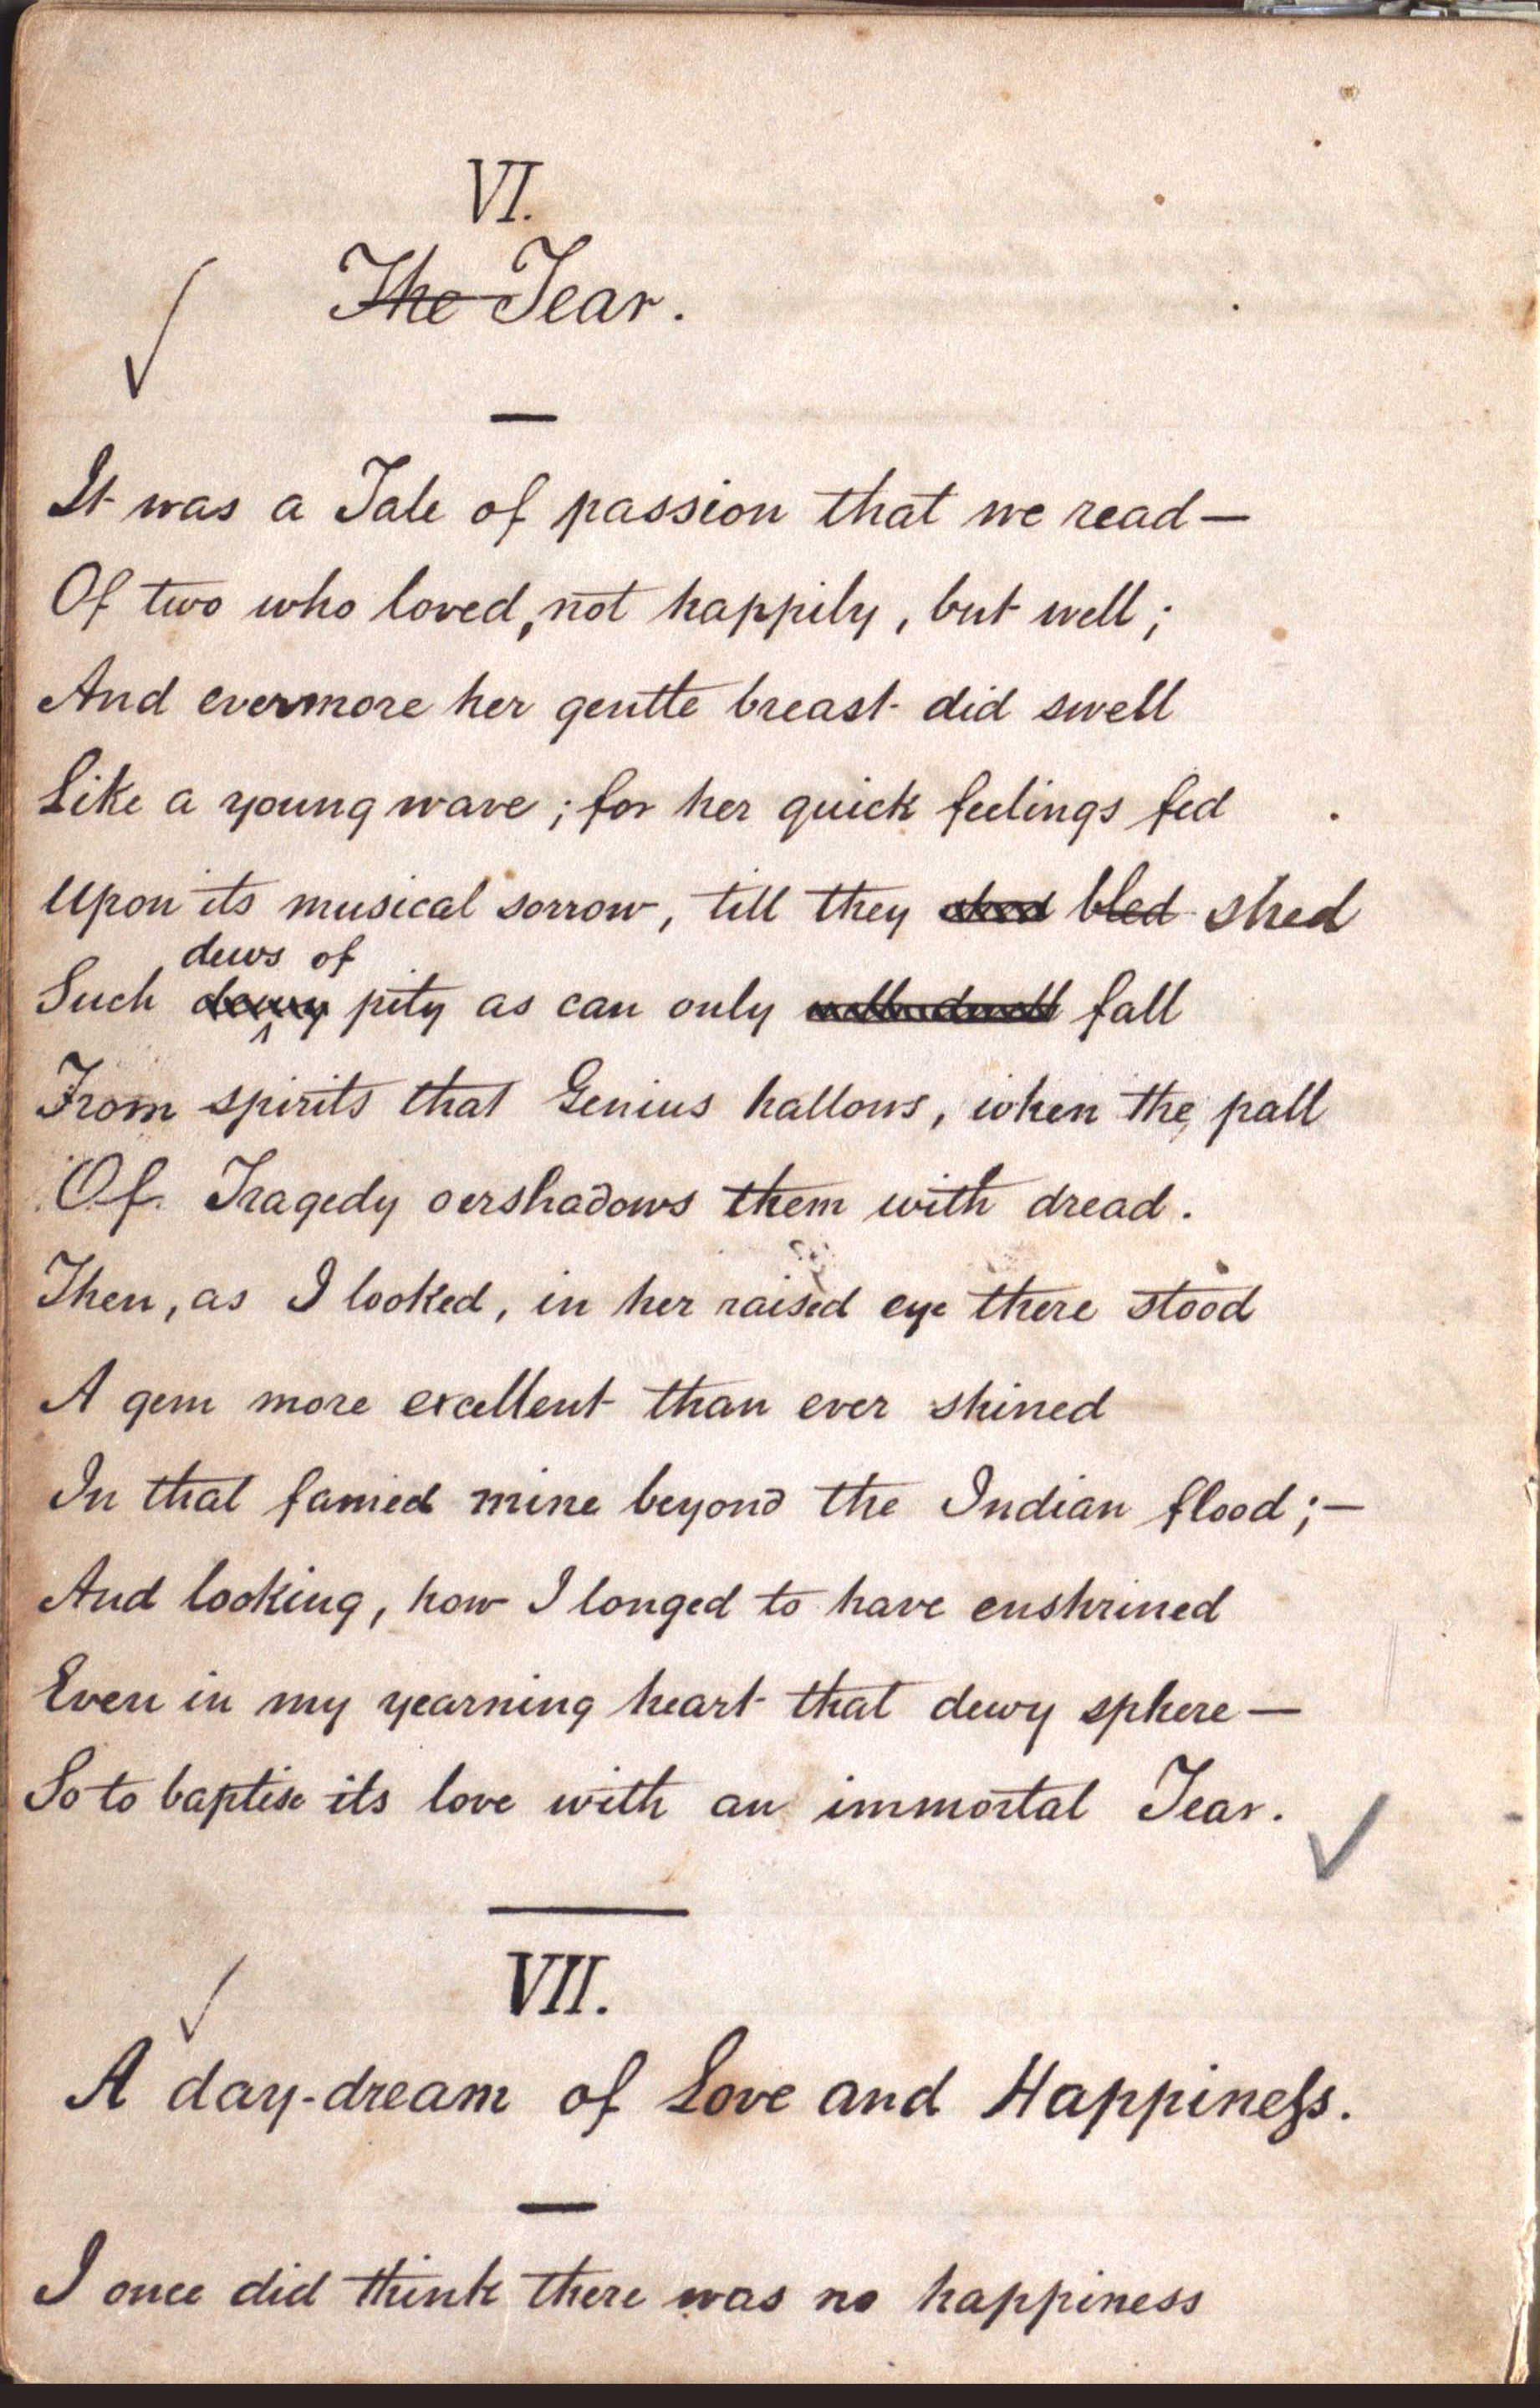 VI.
The Tear.
It was a Tale of passion that we read—
Of two who loved, not happily, but well;
And evermore her gentle breast did swell
Like a young wave; for her quick feelings fed
Upon its musical sorrow, till they shed bled shed
dews of
Such dewy pity as can only fall
From spirits that Genius hallows, when the pall
Of Tragedy oershadows them with dread.
Then, as I looked, in her raised eye there stood
A gem more excellent than ever shined
In that famed mine beyond the Indian flood;—
And looking, how I longed to have enshrined
Even in my yearning heart that dewy sphere—
So to baptise its love with an immortal Tear.
VII.
A day-dream of Love and Happineſs.
I once did think there was no happiness